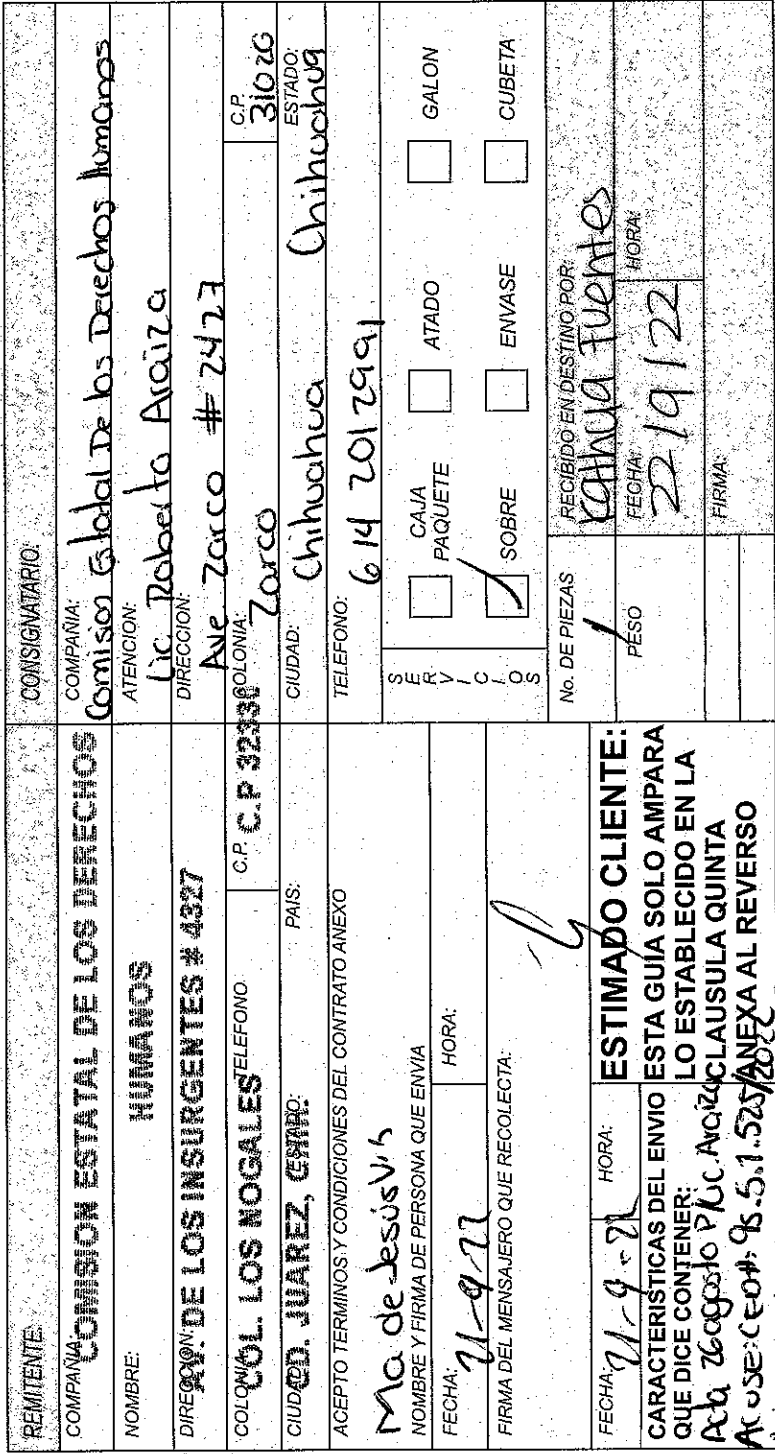 REMITENTE:
COMPAÑIA: COMISION ESTATAL DE LOS DERECHOS
NOMBRE: HUMANOS
DIRECCION: AV. DE LOS INSURGENTES # 4327
COLONIA: COL. LOS NOGALES TELEFONO: C.P. C.P 32350
CIUDAD: CD. JUAREZ, CHIH. ESTADO: PAIS:
ACEPTO TERMINOS Y CONDICIONES DEL CONTRATO ANEXO
Ma de Jesús V.h
NOMBRE Y FIRMA DE PERSONA QUE ENVIA
FECHA: 21-9-22 HORA:
FIRMA DEL MENSAJERO QUE RECOLECTA:
FECHA: 21-9-22 HORA:
CARACTERISTICAS DEL ENVIO
QUE DICE CONTENER:
Acta 26 agosto P/Lic. Araiza
Acuse: CEDH: 9s.5.1.525/2022
ESTIMADO CLIENTE:
ESTA GUIA SOLO AMPARA
LO ESTABLECIDO EN LA
CLAUSULA QUINTA
ANEXA AL REVERSO
CONSIGNATARIO:
COMPAÑIA:
Comison Estatal De los Derechos Humanos
ATENCION:
Lic. Roberto Araiza
DIRECCION:
Ave Zarco # 2427
COLONIA: Zarco C.P. 31020
CIUDAD: Chihuahua ESTADO: Chihuahua
TELEFONO: 614 201 2991
SERVICIOS
CAJA PAQUETE ATADO GALON
SOBRE ENVASE CUBETA
No. DE PIEZAS 1
PESO
RECIBIDO EN DESTINO POR:
Kathya Fuentes
FECHA: 22/9/22 HORA:
FIRMA: